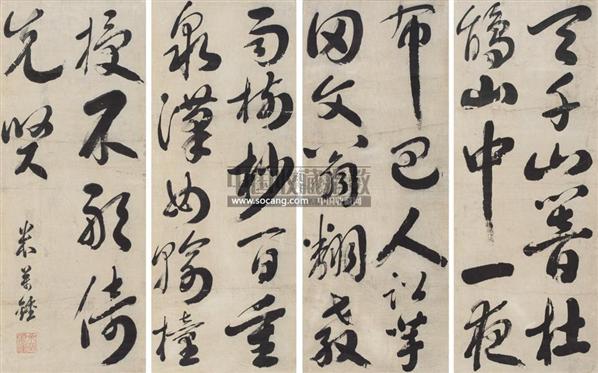 天千山響杜
鵑山中一夜
布巴人訟芋
田文翁翻教
雨樹杪百重
泉漢女輸橦
授不敢倚
先賢
米萬鍾
www.socang.com